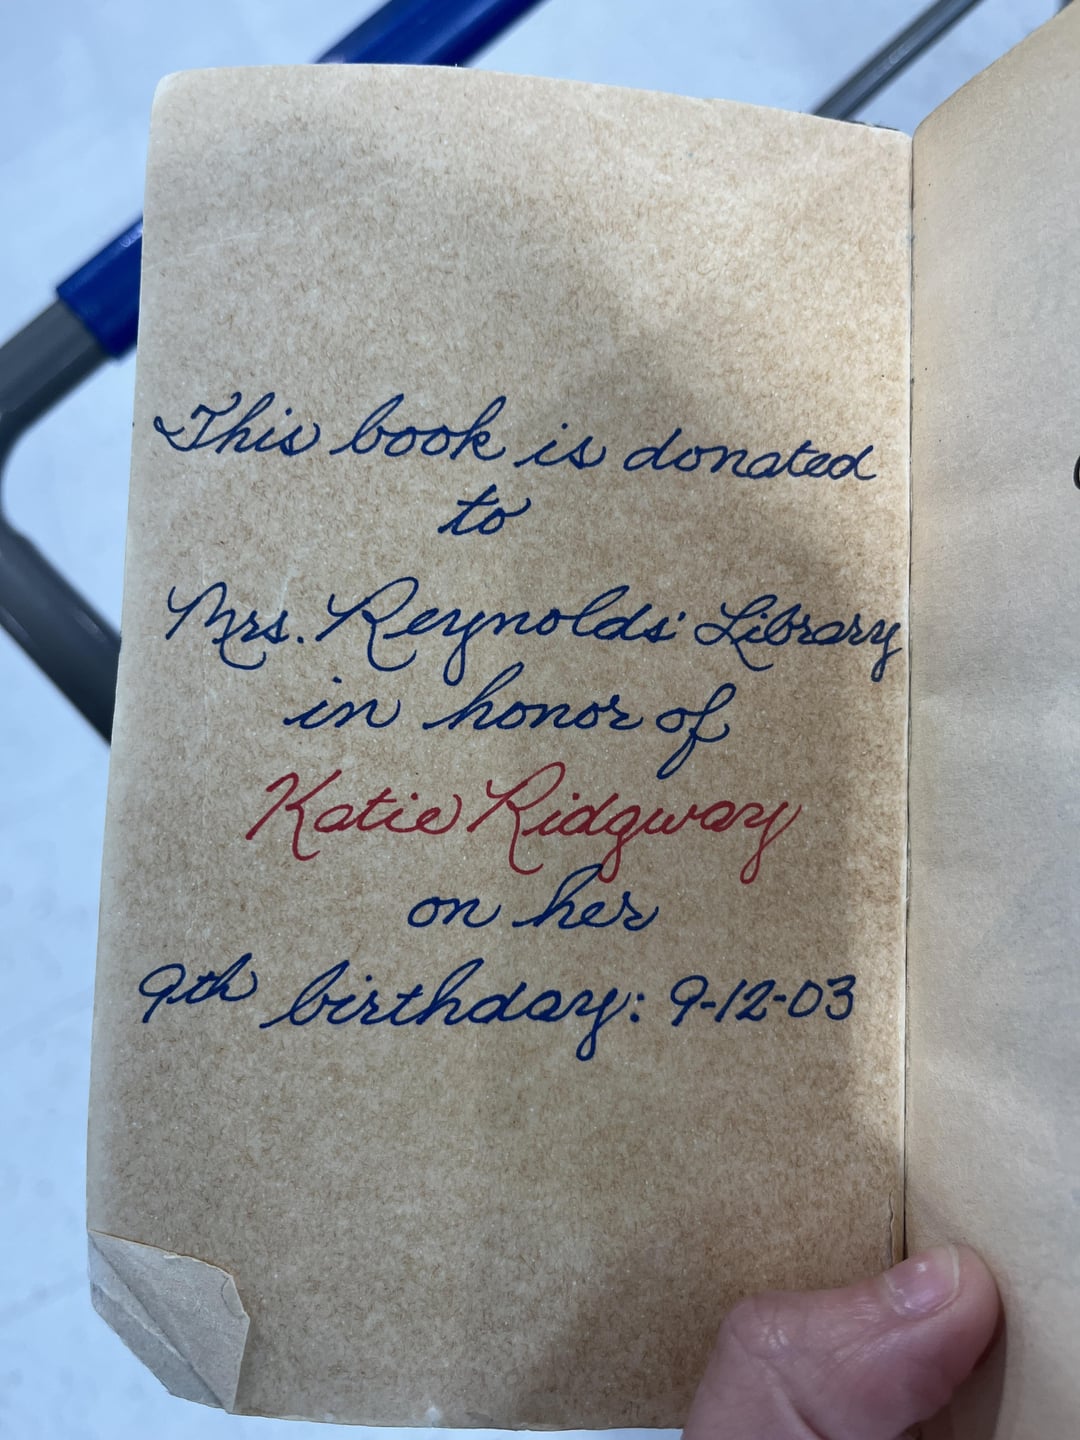 This book is donated
to
Mrs. Reynolds' Library
in honor of
Katie Ridgway
on her
9th birthday: 9-12-03